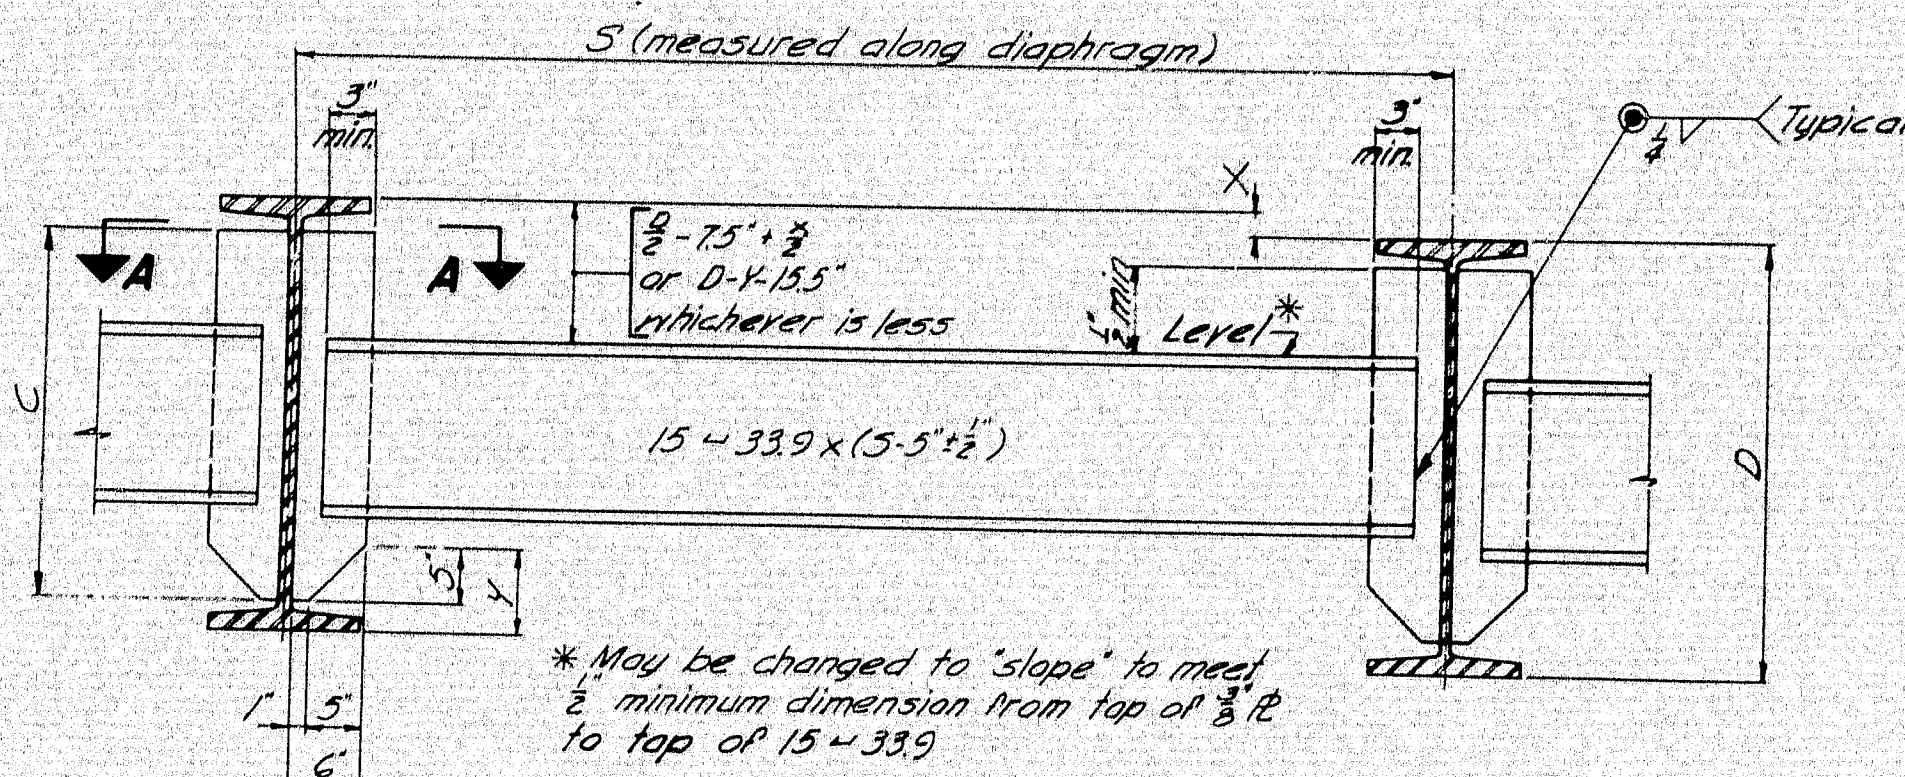 S (measured along diaphragm)
3"
min.
3"
min.
1/4
Typical
X
A
A
D/2 - 7.5" + X/2
or D-Y-15.5"
whichever is less
1/2" min
Level *
C
15 ⌴ 33.9 x (S-5" ± 1/2")
D
5"
Y
* May be changed to "slope" to meet
1/2" minimum dimension from top of 3/8" ℄
to top of 15 ⌴ 33.9
1"
5"
6"